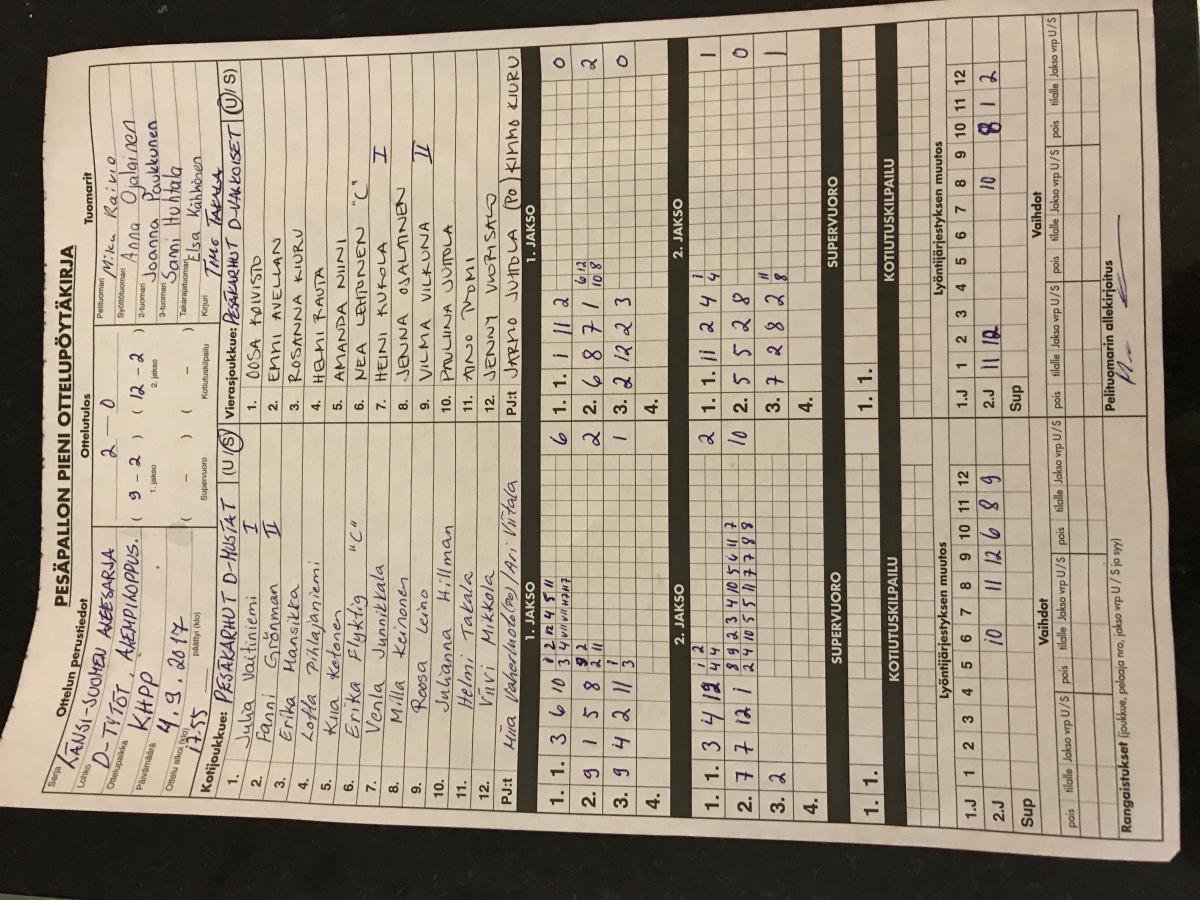 PESÄPALLON PIENI OTTELUPÖYTÄKIRJA
Ottelun perustiedot
Sarja
LÄNSI-SUOMEN ALUESARJA
Lohko
D-TYTÖT, ALEMPILOPPUS.
Ottelupaikka
KHPP
Päivämäärä
4.9.2017
Ottelu alkoi (klo)
17.55
päättyi (klo)
Ottelutulos
2 — 0
( 9 - 2 ) ( 12 - 2 )
1. jakso 2. jakso
( - ) ( - )
Supervuoro Kotiutuskilpailu
Tuomarit
Pelituomari Miku Raivio
Syöttötuomari Anna Ojalainen
2-tuomari Joanna Paukkunen
3-tuomari Sanni Huhtala
Takarajatuomari Elsa Kähkönen
Kirjuri TIMO TAKALA
Kotijoukkue: PESÄKARHUT D-MUSTAT (U/S)
1. Julia Vaitiniemi I
2. Fanni Grönman II
3. Erika Mansikka
4. Lotta Pihlajaniemi
5. Kiia Ketonen
6. Erika Flyktig "C"
7. Venla Junnikkala
8. Milla Keinonen
9. Roosa Leino
10. Julianna Hillman
11. Helmi Takala
12. Viivi Mikkola
PJ:t
Vierasjoukkue: PESÄKARHUT D-VALKOISET (U/S)
1. OOSA KOIVISTO
2. EMMI AVELLAN
3. ROSANNA KIURU
4. HELMI RAUTA
5. AMANDA NIINI
6. NEA LEHTONEN "C"
7. HEINI KUKOLA I
8. JENNA OJALAINEN
9. VILMA VILKUNA II
10. PAULIINA JUTDLA
11. AINO TUOMI
12. JENNY VUORISALO
PJ:t JARMO JUTDLA (PO) KIMMO KIURU
1. JAKSO
1. 1. 3 6 10 6
2. 9 1 5 8 2
3. 9 4 2 11 1
4.
1. JAKSO
1. 1. 1 11 2 0
2. 6 8 7 1 6 12 2
10 8
3. 2 12 2 3 0
4.
2. JAKSO
1. 1. 3 4 12 1 2 2
4 4
2. 7 7 12 1 8 9 2 3 4 10 5 6 11 7 10
2 4 10 5 5 11 7 7 8 8
3. 2
4.
2. JAKSO
1. 1. 11 2 4 1 1
4
2. 5 5 2 8 0
3. 7 2 8 2 11 1
8
4.
SUPERVUORO
1. 1.
SUPERVUORO
1. 1.
KOTIUTUSKILPAILU
KOTIUTUSKILPAILU
Lyöntijärjestyksen muutos
1 2 3 4 5 6 7 8 9 10 11 12
1.J
2.J 10 11 12 6 8 9
Sup
Lyöntijärjestyksen muutos
1 2 3 4 5 6 7 8 9 10 11 12
1.J
2.J 11 12 10 8 1 2
Sup
Vaihdot
pois tilalle Jakso vrp U/S pois tilalle Jakso vrp U/S pois tilalle Jakso vrp U/S
Vaihdot
pois tilalle Jakso vrp U/S pois tilalle Jakso vrp U/S pois tilalle Jakso vrp U/S
Rangaistukset (joukkue, pelaaja nro, jakso vrp U / S ja syy)
Pelituomarin allekirjoitus